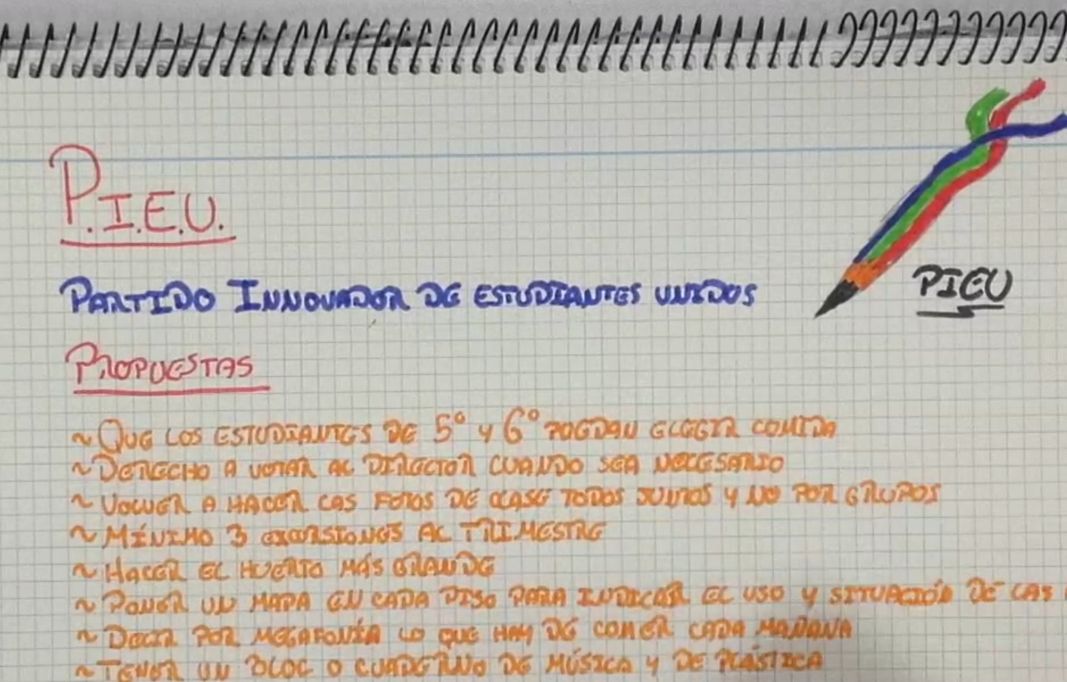 P.I.E.U.
PIEU
PARTIDO INNOVADOR DE ESTUDIANTES UNIDOS
PROPUESTAS
~ QUE LOS ESTUDIANTES DE 5º Y 6º PUEDAN ELEGIR COMIDA
~ DERECHO A VOTAR AL DIRECTOR CUANDO SEA NECESARIO
~ VOLVER A HACER LAS FOTOS DE CLASE TODOS JUNTOS Y NO POR GRUPOS
~ MÍNIMO 3 EXCURSIONES AL TRIMESTRE
~ HACER EL HUERTO MÁS GRANDE
~ PONER UN MAPA EN CADA PISO PARA INDICAR EL USO Y SITUACIÓN DE LAS
~ DECIR POR MEGAFONÍA LO QUE HAY DE COMER CADA MAÑANA
~ TENER UN BLOC O CUADERNO DE MÚSICA Y DE PLÁSTICA